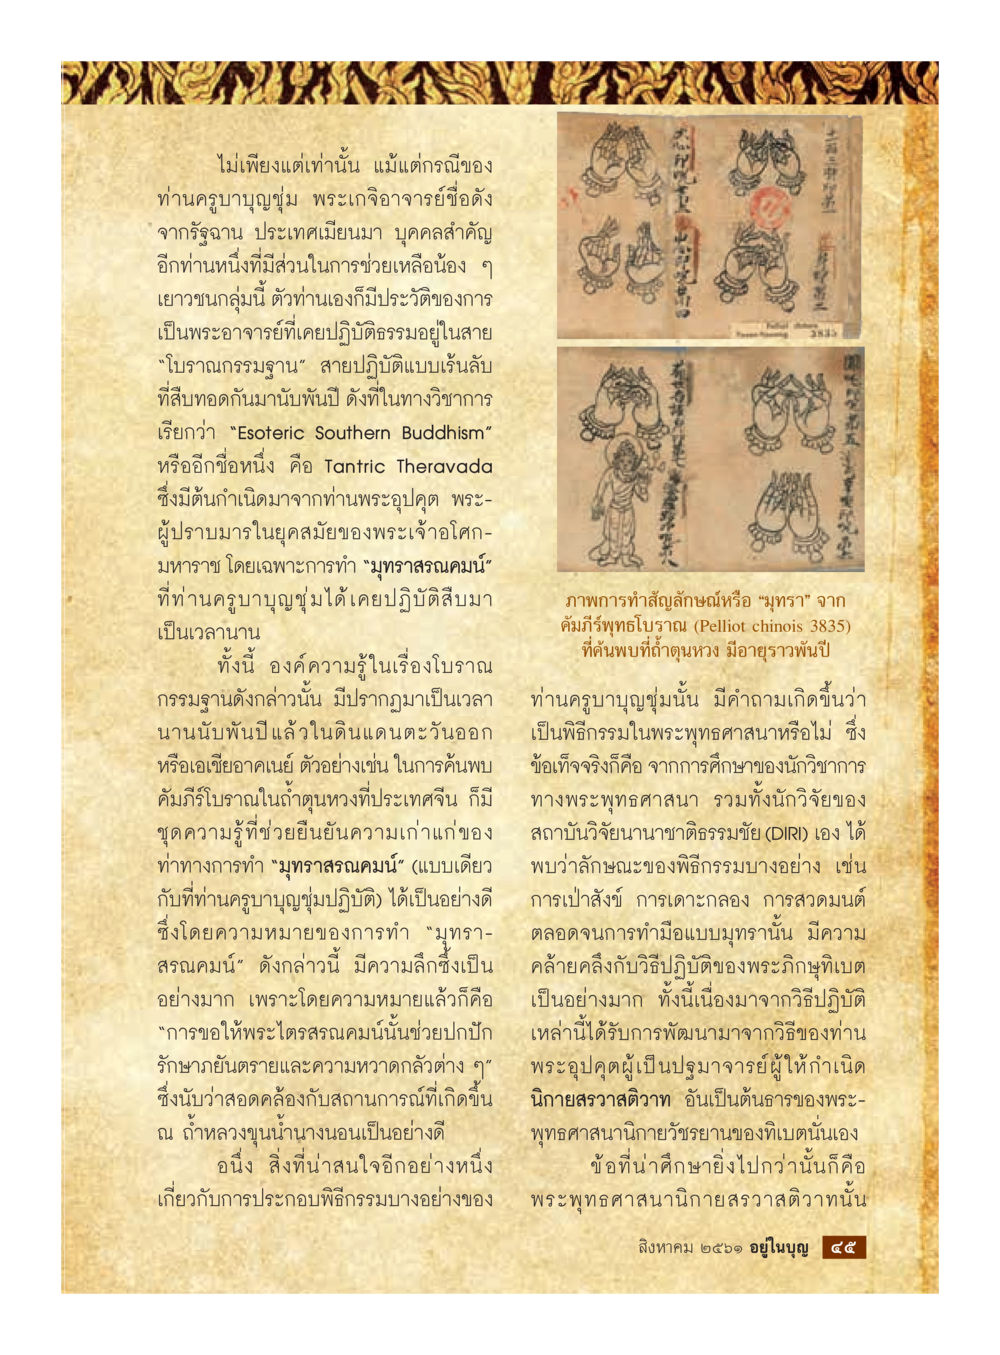 ไม่เพียงแต่เท่านั้น แม้แต่กรณีของ
ท่านครูบาบุญชุ่ม พระเกจิอาจารย์ชื่อดัง
จากรัฐฉาน ประเทศเมียนมา บุคคลสำคัญ
อีกท่านหนึ่งที่มีส่วนในการช่วยเหลือน้อง ๆ
เยาวชนกลุ่มนี้ ตัวท่านเองก็มีประวัติของการ
เป็นพระอาจารย์ที่เคยปฏิบัติธรรมอยู่ในสาย
“โบราณกรรมฐาน” สายปฏิบัติแบบเร้นลับ
ที่สืบทอดกันมานับพันปี ดังที่ในทางวิชาการ
เรียกว่า “Esoteric Southern Buddhism”
หรืออีกชื่อหนึ่ง คือ Tantric Theravada
ซึ่งมีต้นกำเนิดมาจากท่านพระอุปคุต พระ-
ผู้ปราบมารในยุคสมัยของพระเจ้าอโศก-
มหาราช โดยเฉพาะการทำ “มุทราสรณคมน์”
ที่ท่านครูบาบุญชุ่มได้เคยปฏิบัติสืบมา
เป็นเวลานาน
ทั้งนี้ องค์ความรู้ในเรื่องโบราณ
กรรมฐานดังกล่าวนั้น มีปรากฏมาเป็นเวลา
นานนับพันปีแล้วในดินแดนตะวันออก
หรือเอเชียอาคเนย์ ตัวอย่างเช่น ในการค้นพบ
คัมภีร์โบราณในถ้ำตุนหวงที่ประเทศจีน ก็มี
ชุดความรู้ที่ช่วยยืนยันความเก่าแก่ของ
ท่าทางการทำ “มุทราสรณคมน์” (แบบเดียว
กับที่ท่านครูบาบุญชุ่มปฏิบัติ) ได้เป็นอย่างดี
ซึ่งโดยความหมายของการทำ “มุทรา-
สรณคมน์” ดังกล่าวนี้ มีความลึกซึ้งเป็น
อย่างมาก เพราะโดยความหมายแล้วก็คือ
“การขอให้พระไตรสรณคมน์นั้นช่วยปกปัก
รักษาภยันตรายและความหวาดกลัวต่าง ๆ”
ซึ่งนับว่าสอดคล้องกับสถานการณ์ที่เกิดขึ้น
ณ ถ้ำหลวงขุนน้ำนางนอนเป็นอย่างดี
อนึ่ง สิ่งที่น่าสนใจอีกอย่างหนึ่ง
เกี่ยวกับการประกอบพิธีกรรมบางอย่างของ
Pelliot chinois
Touen-houang 3835
ภาพการทำสัญลักษณ์หรือ “มุทรา” จาก
คัมภีร์พุทธโบราณ (Pelliot chinois 3835)
ที่ค้นพบที่ถ้ำตุนหวง มีอายุราวพันปี
ท่านครูบาบุญชุ่มนั้น มีคำถามเกิดขึ้นว่า
เป็นพิธีกรรมในพระพุทธศาสนาหรือไม่ ซึ่ง
ข้อเท็จจริงก็คือ จากการศึกษาของนักวิชาการ
ทางพระพุทธศาสนา รวมทั้งนักวิจัยของ
สถาบันวิจัยนานาชาติธรรมชัย (DIRI) เอง ได้
พบว่าลักษณะของพิธีกรรมบางอย่าง เช่น
การเป่าสังข์ การเคาะกลอง การสวดมนต์
ตลอดจนการทำมือแบบมุทรานั้น มีความ
คล้ายคลึงกับวิธีปฏิบัติของพระภิกษุทิเบต
เป็นอย่างมาก ทั้งนี้เนื่องมาจากวิธีปฏิบัติ
เหล่านี้ได้รับการพัฒนามาจากวิธีของท่าน
พระอุปคุตผู้เป็นปฐมาจารย์ผู้ให้กำเนิด
นิกายสรวาสติวาท อันเป็นต้นธารของพระ-
พุทธศาสนานิกายวัชรยานของทิเบตนั่นเอง
ข้อที่น่าศึกษายิ่งไปกว่านั้นก็คือ
พระพุทธศาสนานิกายสรวาสติวาทนั้น
สิงหาคม ๒๕๖๑ อยู่ในบุญ ๔๕